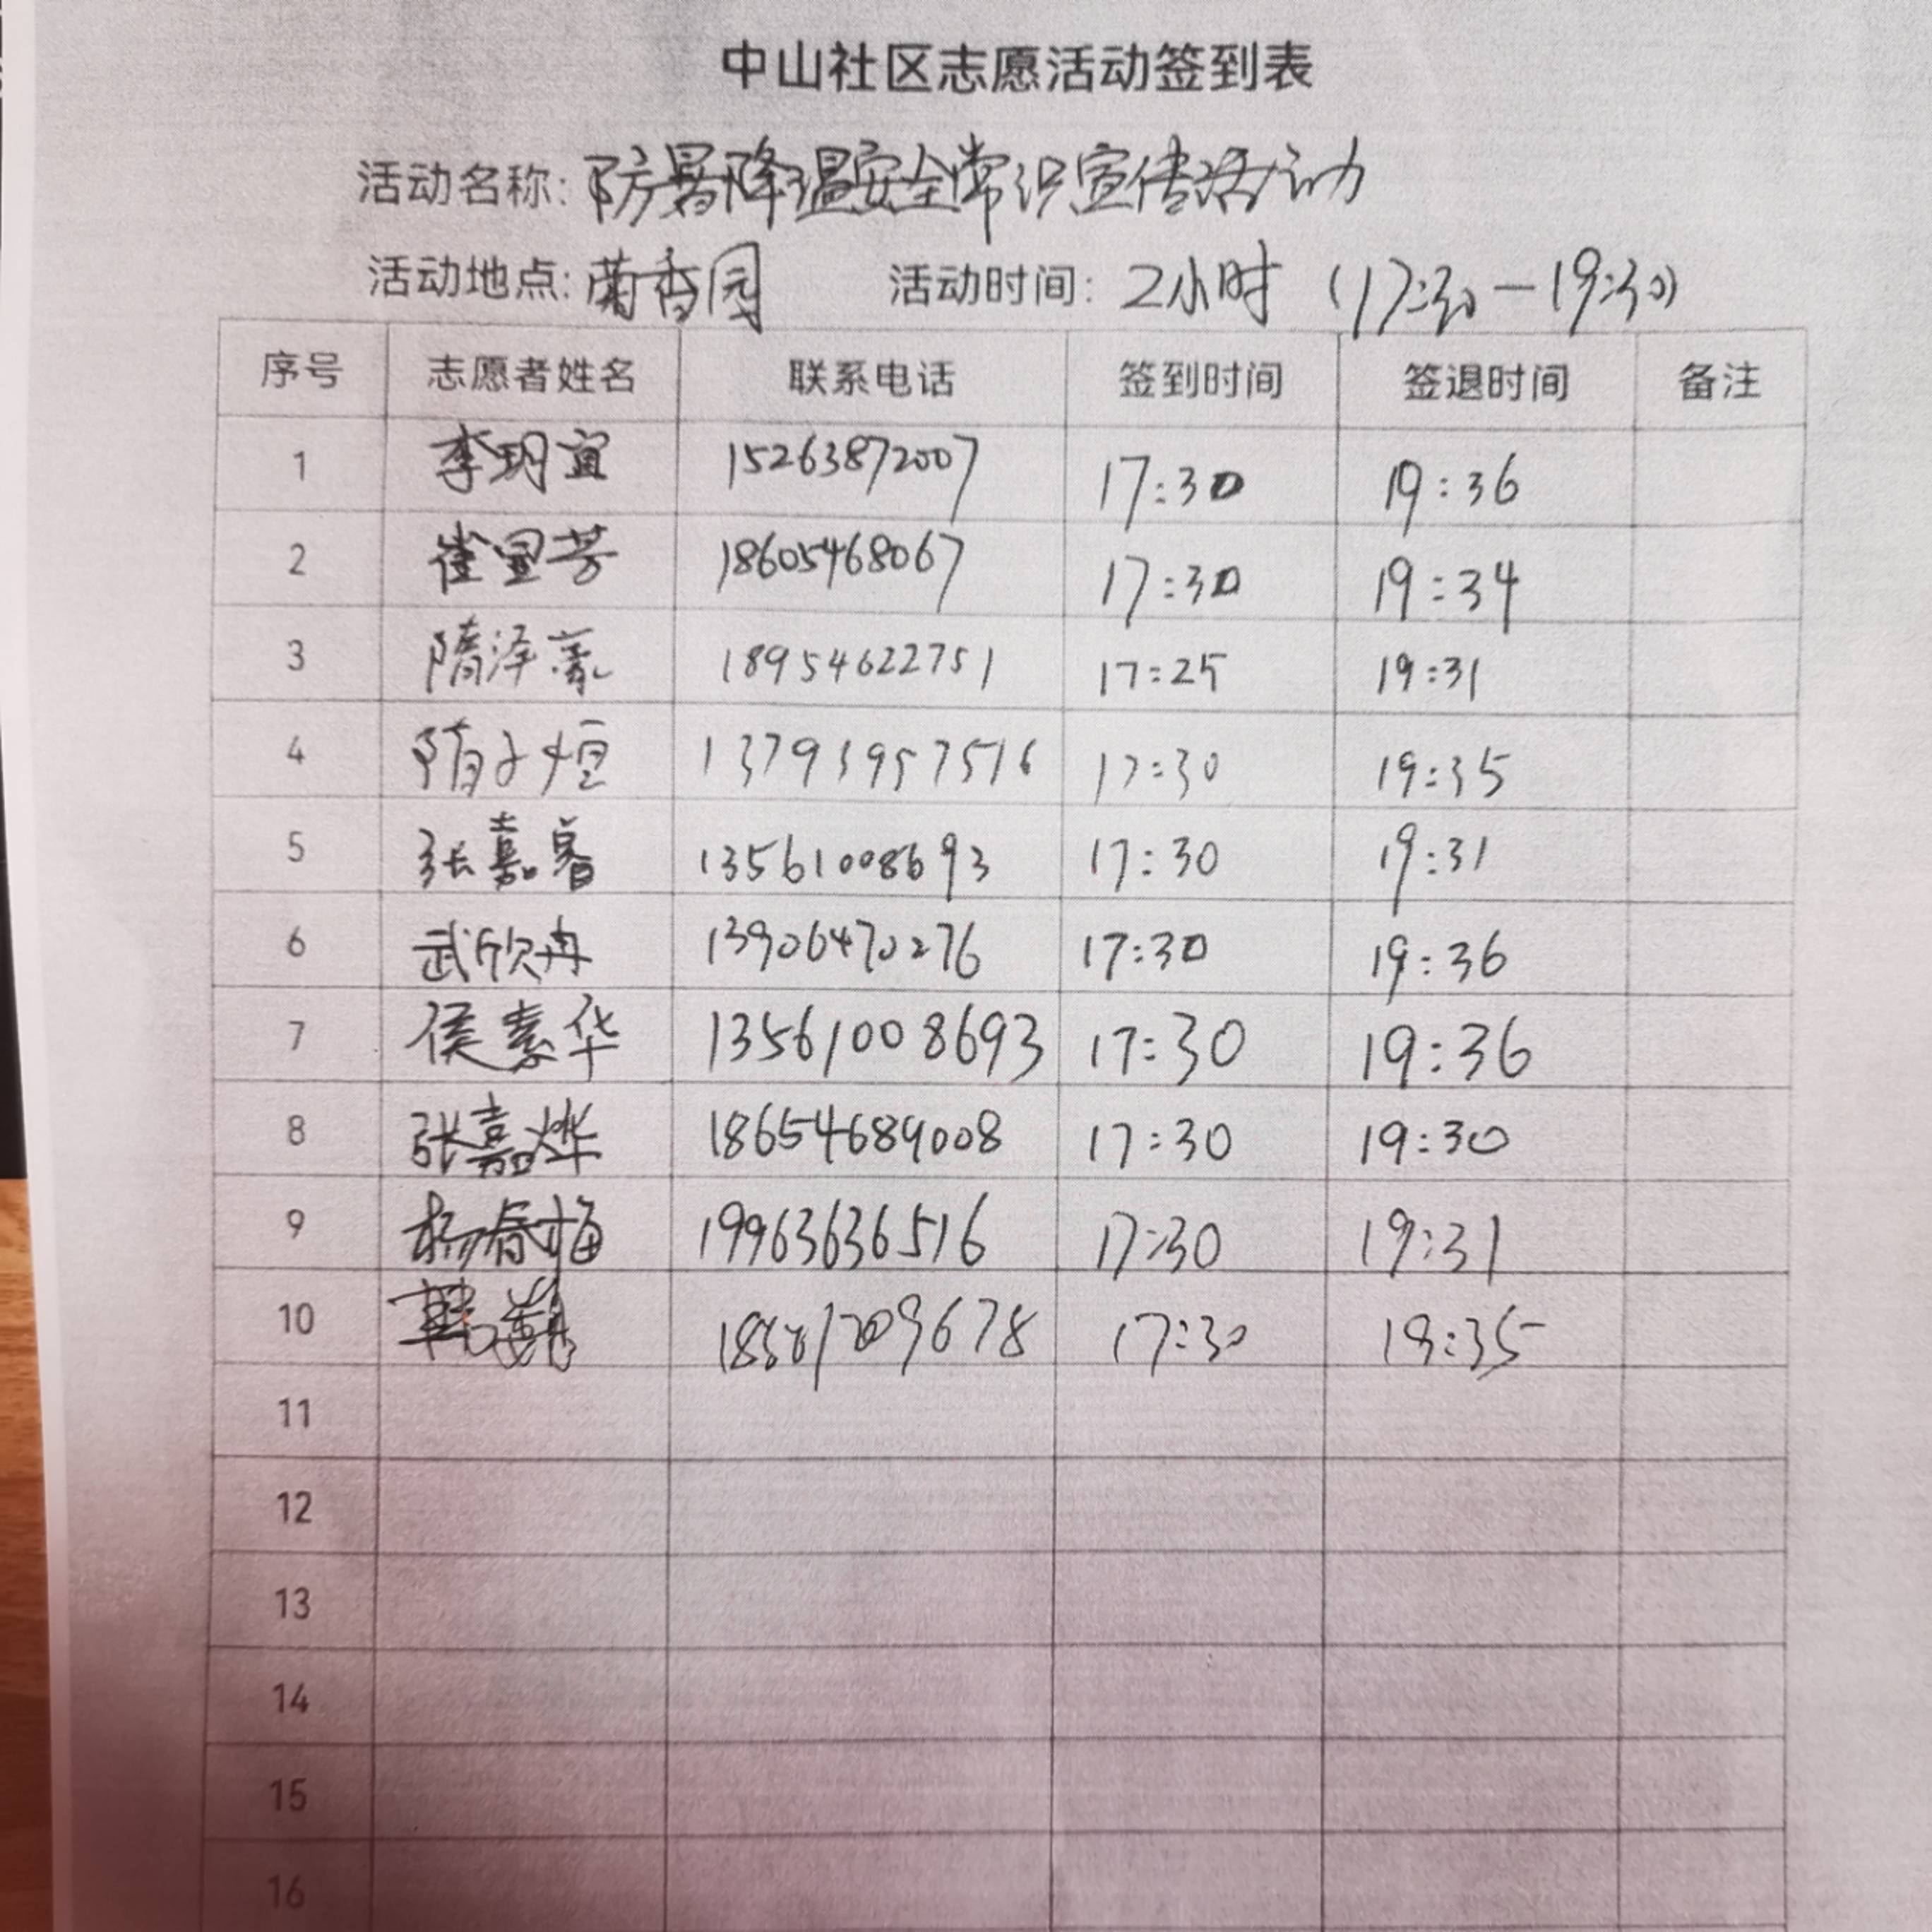 中山社区志愿活动签到表
活动名称: 防暑降温安全常识宣传活动
活动地点: 菊香园 活动时间: 2小时 (17:30-19:30)
序号 志愿者姓名 联系电话 签到时间 签退时间 备注
1 李玥宜 15263872007 17:30 19:36
2 崔宜芳 18605468067 17:30 19:34
3 隋泽豪 18954622751 17:25 19:31
4 隋子恒 13793957516 17:30 19:35
5 张嘉睿 13561008693 17:30 19:31
6 武欣冉 13906470276 17:30 19:36
7 侯素华 13561008693 17:30 19:36
8 张嘉烨 18654689008 17:30 19:30
9 杨春梅 19963636516 17:30 19:31
10 17:30 19:35
11
12
13
14
15
16